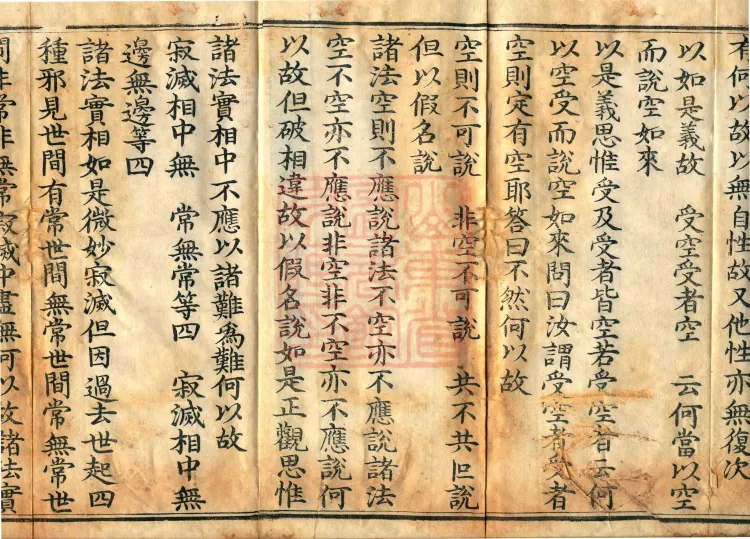 有何以故以無自性故又他性亦無復次
以如是義故　受空受者空　云何當以空
而說空如來
以是義思惟受及受者皆空若受空者云何
以空受而說空如來問曰汝謂受空者受者
空則定有空耶答曰不然何以故
空則不可說　非空不可說　共不共叵說
但以假名說
諸法空則不應說諸法不空亦不應說諸法
空不空亦不應說非空非不空亦不應說何
以故但破相違故以假名說如是正觀思惟
諸法實相中不應以諸難為難何以故
寂滅相中無　常無常等四　寂滅相中無
邊無邊等四
諸法實相如是微妙寂滅但因過去世起四
種邪見世間有常世間無常世間常無常世
間非常非無常寂滅中盡無何以故諸法實